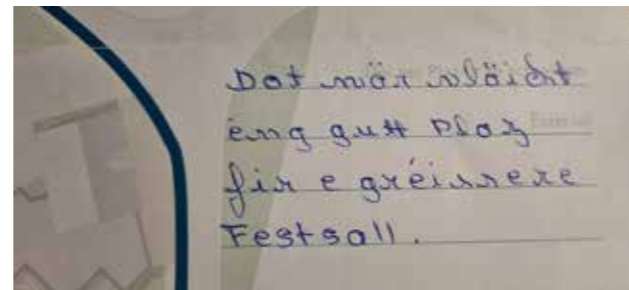 Dat wär vläicht
eng gutt Plaz
fir e gréissere
Festsall.